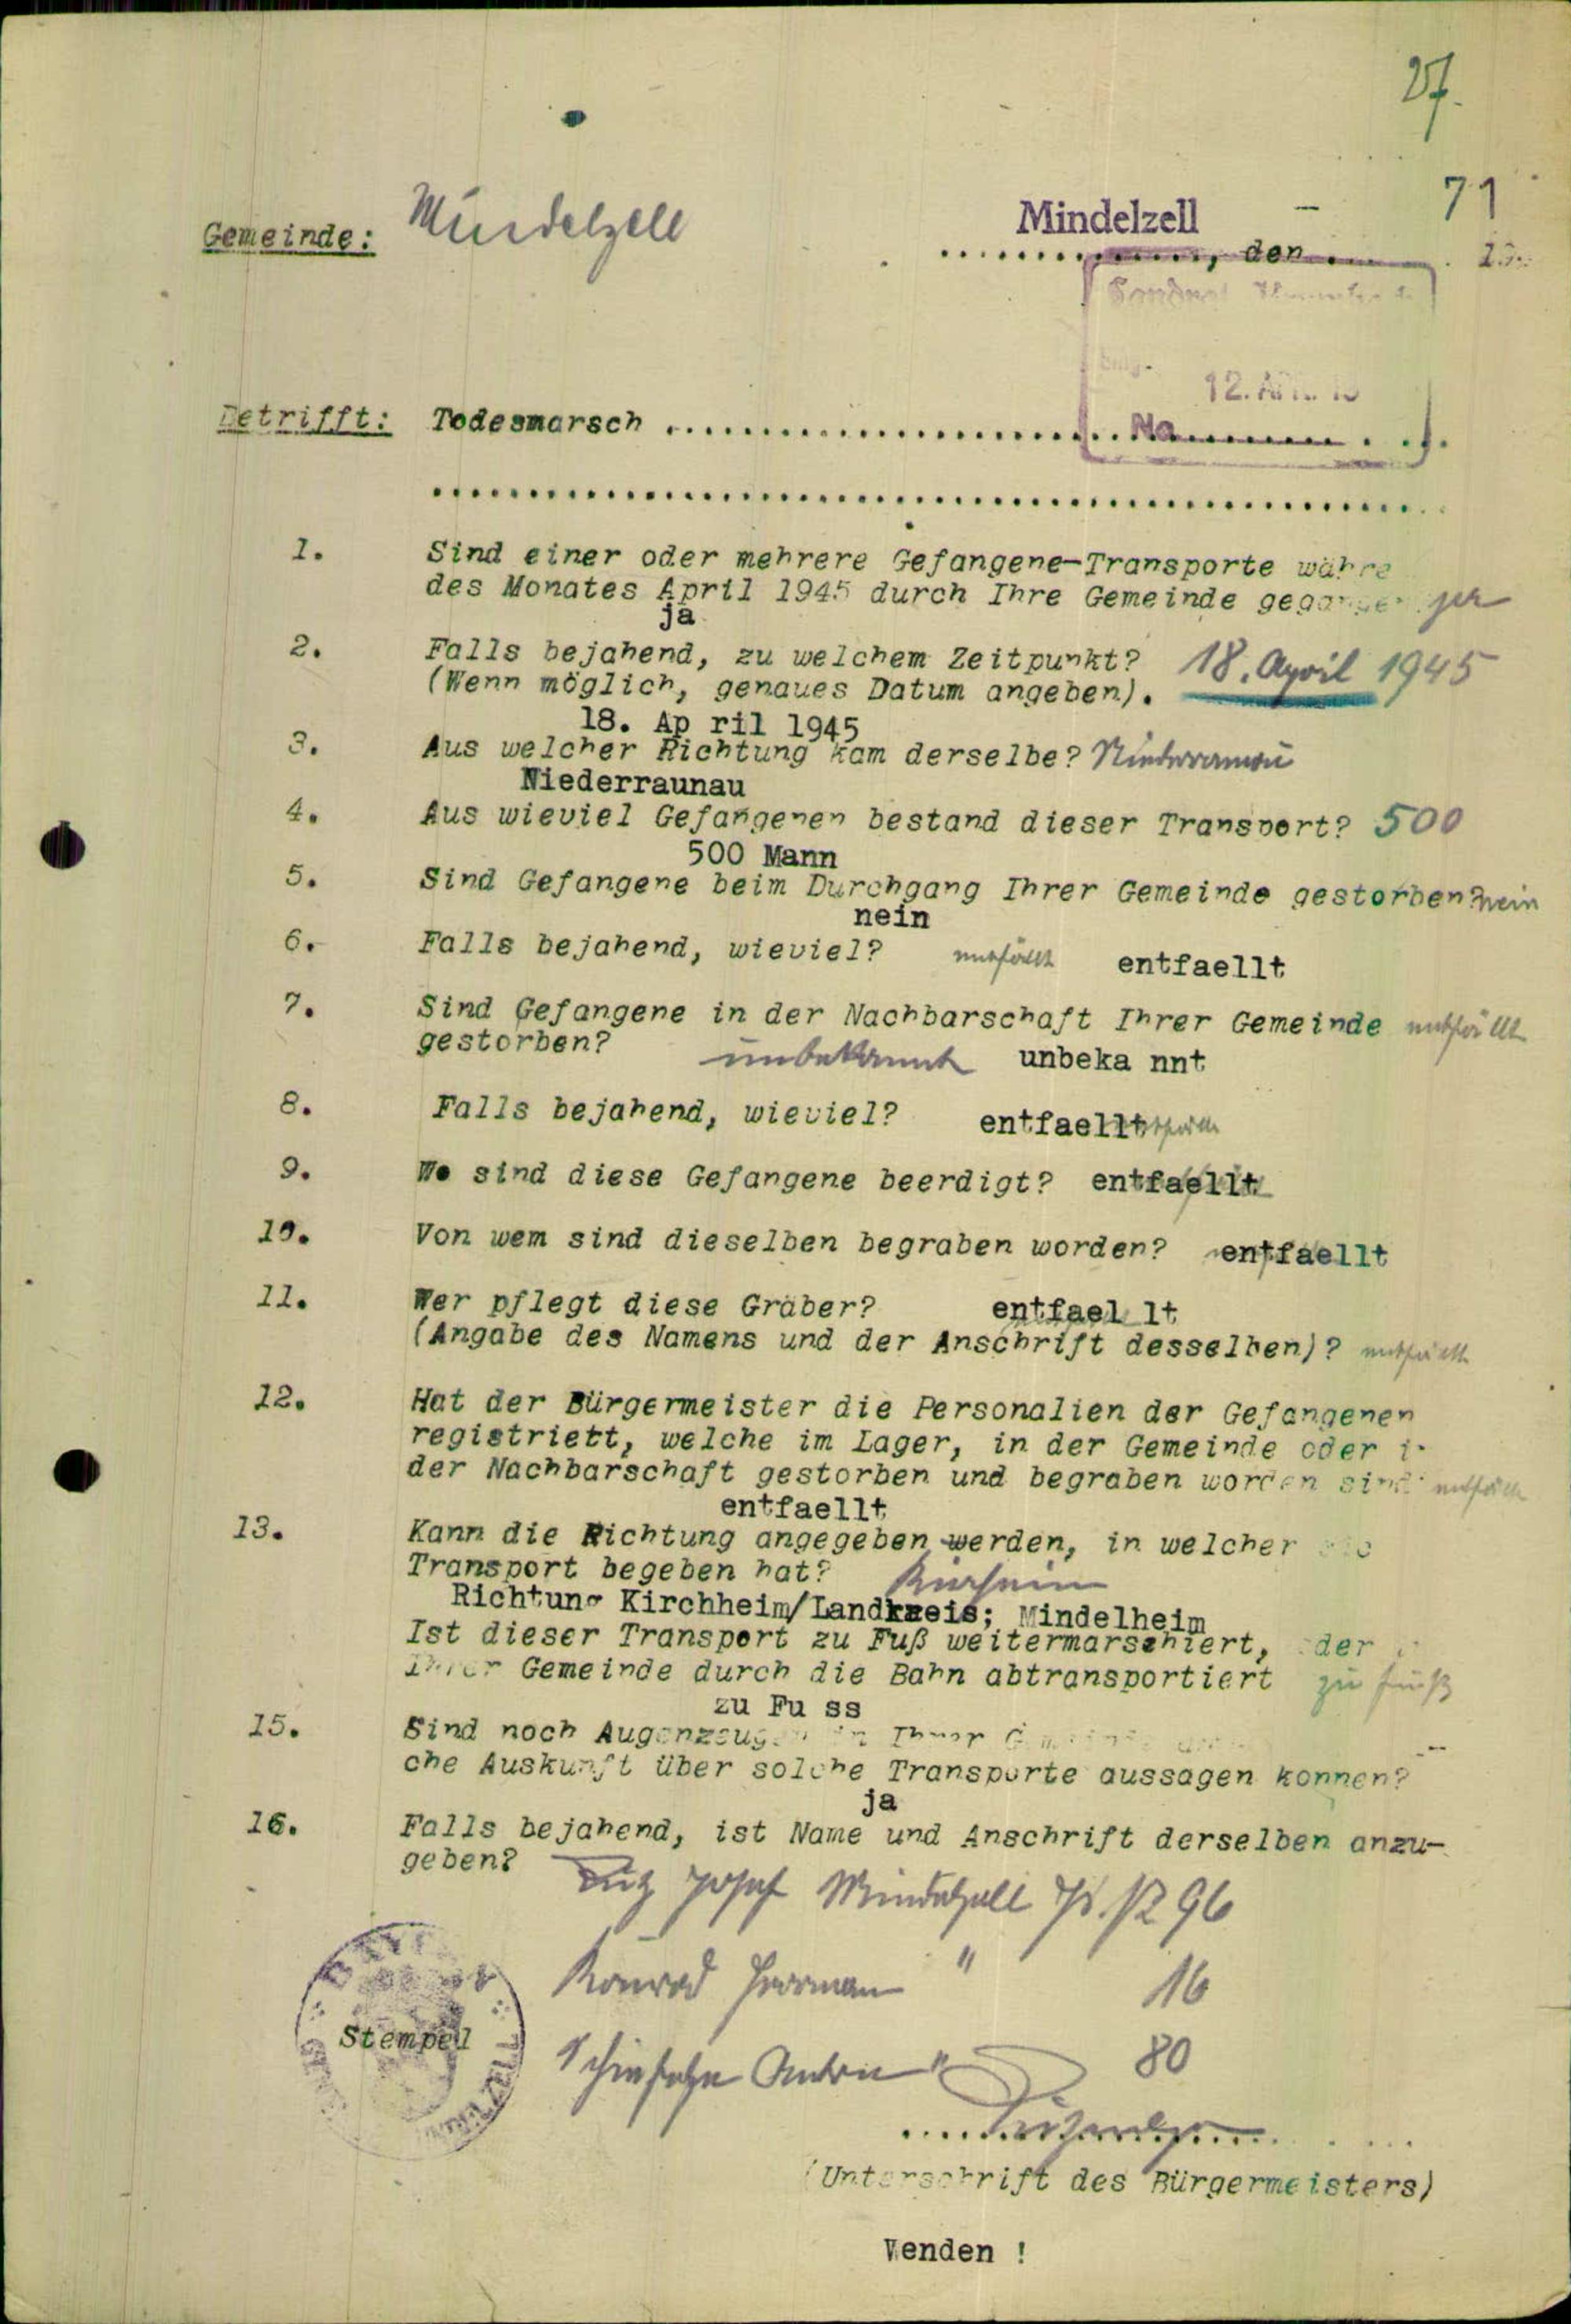 27.
71
Gemeinde: Mindelzell
Mindelzell
............., den .... 19..
12. APR.
No
Betrifft: Todesmarsch ........................................
............................................................
1. Sind einer oder mehrere Gefangene-Transporte währe
des Monates April 1945 durch Ihre Gemeinde gegangen ja
ja
2. Falls bejahend, zu welchem Zeitpunkt? 18. April 1945
(Wenn möglich, genaues Datum angeben).
18. Ap ril 1945
3. Aus welcher Richtung kam derselbe? Niederraunau
Niederraunau
4. Aus wieviel Gefangenen bestand dieser Transport? 500
500 Mann
5. Sind Gefangene beim Durchgang Ihrer Gemeinde gestorben? nein
nein
6. Falls bejahend, wieviel? entfällt entfaellt
7. Sind Gefangene in der Nachbarschaft Ihrer Gemeinde entfällt
gestorben? unbekannt unbeka nnt
8. Falls bejahend, wieviel? entfaellt entfällt
9. Wo sind diese Gefangene beerdigt? entfaellt
10. Von wem sind dieselben begraben worden? entfaellt
11. Wer pflegt diese Gräber? entfael lt
(Angabe des Namens und der Anschrift desselben)? entfällt
12. Hat der Bürgermeister die Personalien der Gefangenen
registriett, welche im Lager, in der Gemeinde oder i
der Nachbarschaft gestorben und begraben worden sind entfällt
entfaellt
13. Kann die Richtung angegeben werden, in welcher
Transport begeben hat?
Richtung Kirchheim/Landkreis; Mindelheim
Ist dieser Transport zu Fuß weitermarschiert, oder
Ihrer Gemeinde durch die Bahn abtransportiert zu Fuß
zu Fu ss
15. Sind noch Augenzeugen in Ihrer Gemeinde
che Auskunft über solche Transporte aussagen konnen?
ja
16. Falls bejahend, ist Name und Anschrift derselben anzu-
geben?
Josef Mindelzell 96
Konrad Herrman " 16
Anton " 80
Stempel
(Unterschrift des Bürgermeisters)
Wenden !